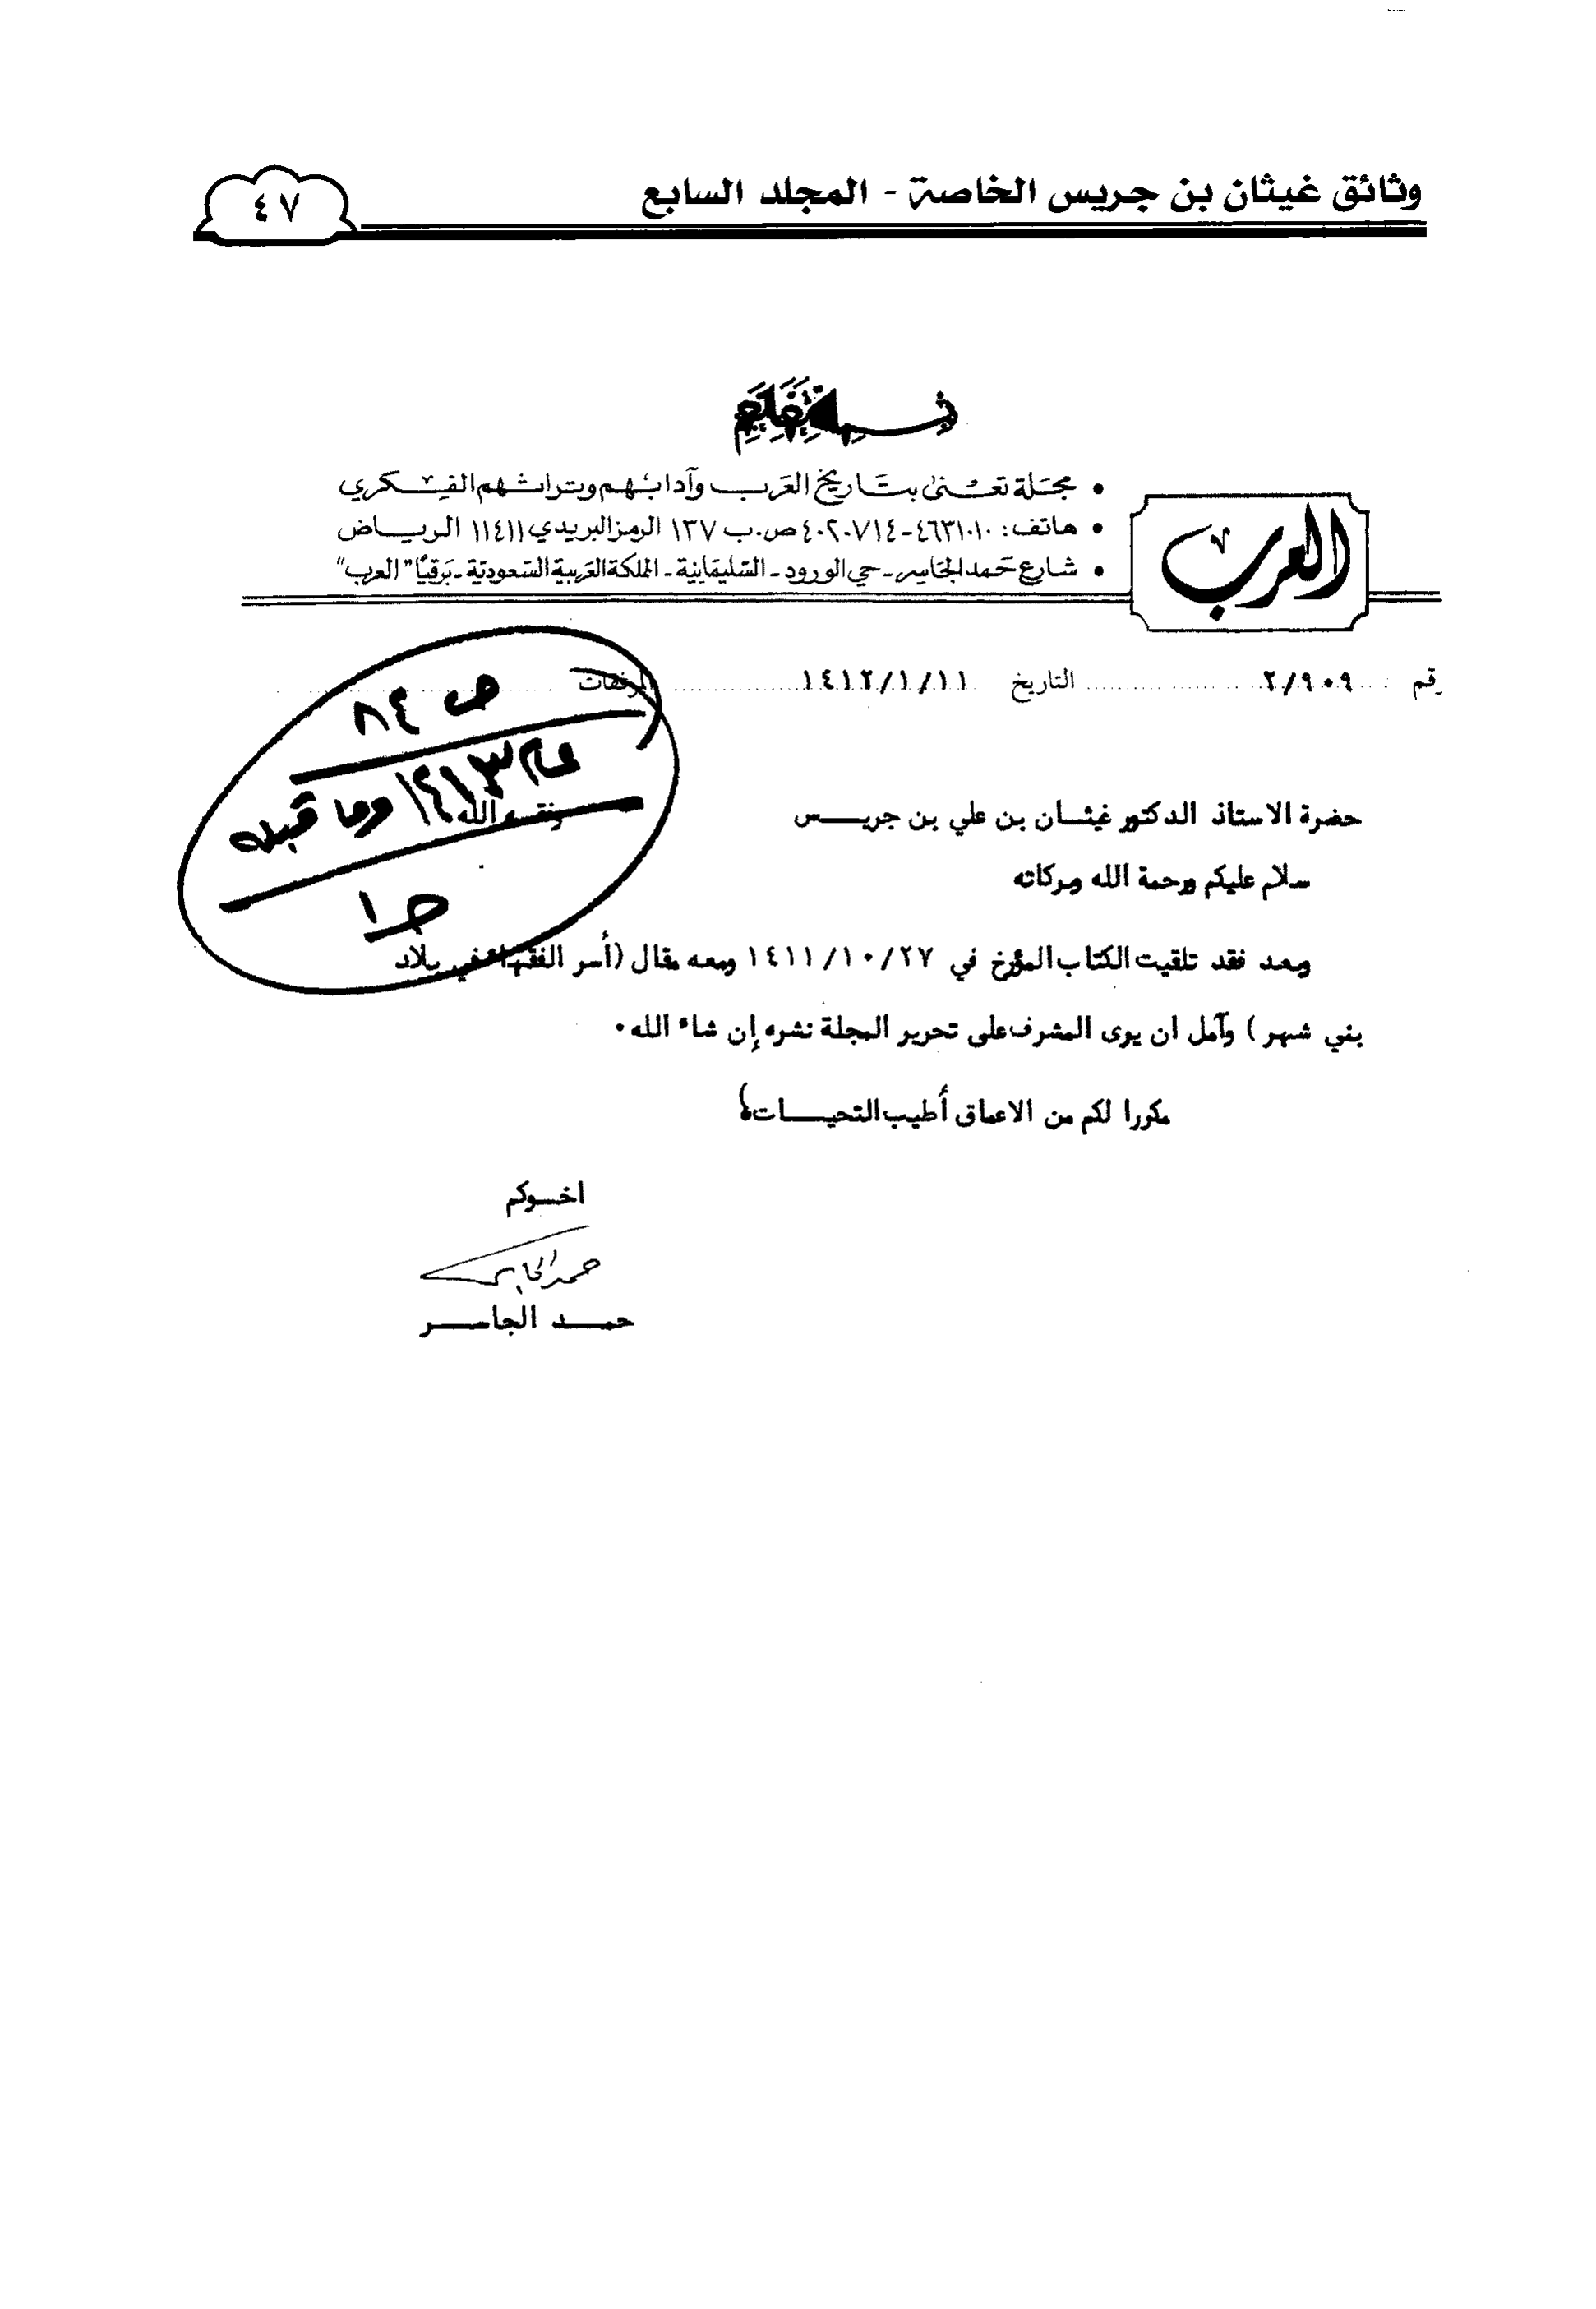 وثائق غيثان بن جريس الخاصة - المجلد السابع
٤٧
العرب
• مجلة تعنى بتاريخ العرب وآدابهم وتراثهم الفكري
• هاتف: ٤٦٣١٠١٠ - ٤٠٢٠٧١٤ ص.ب ١٣٧ الرمز البريدي ١١٤١١ الرياض
• شارع حمد الجاسر - حي الورود - السليمانية - المملكة العربية السعودية - برقيًا "العرب"
رقم ٢/٩٠٩ التاريخ ١٤١٢/١/١١ المرفقات
ص ٨٤
عام ١٤١٣ وما قبله
ج١
حضرة الاستاذ الدكتور غيثان بن علي بن جريس وفقه الله
سلام عليكم ورحمة الله وبركاته
وبعد فقد تلقيت الكتاب المؤرخ في ١٤١١/١٠/٢٧ ومعه مقال (أسر الفقهاء في بلاد
بني شهر) وآمل ان يرى المشرف على تحرير المجلة نشره إن شاء الله.
مكررا لكم من الاعماق أطيب التحيات،
اخوكم
حمد الجاسر
حمد الجاسر